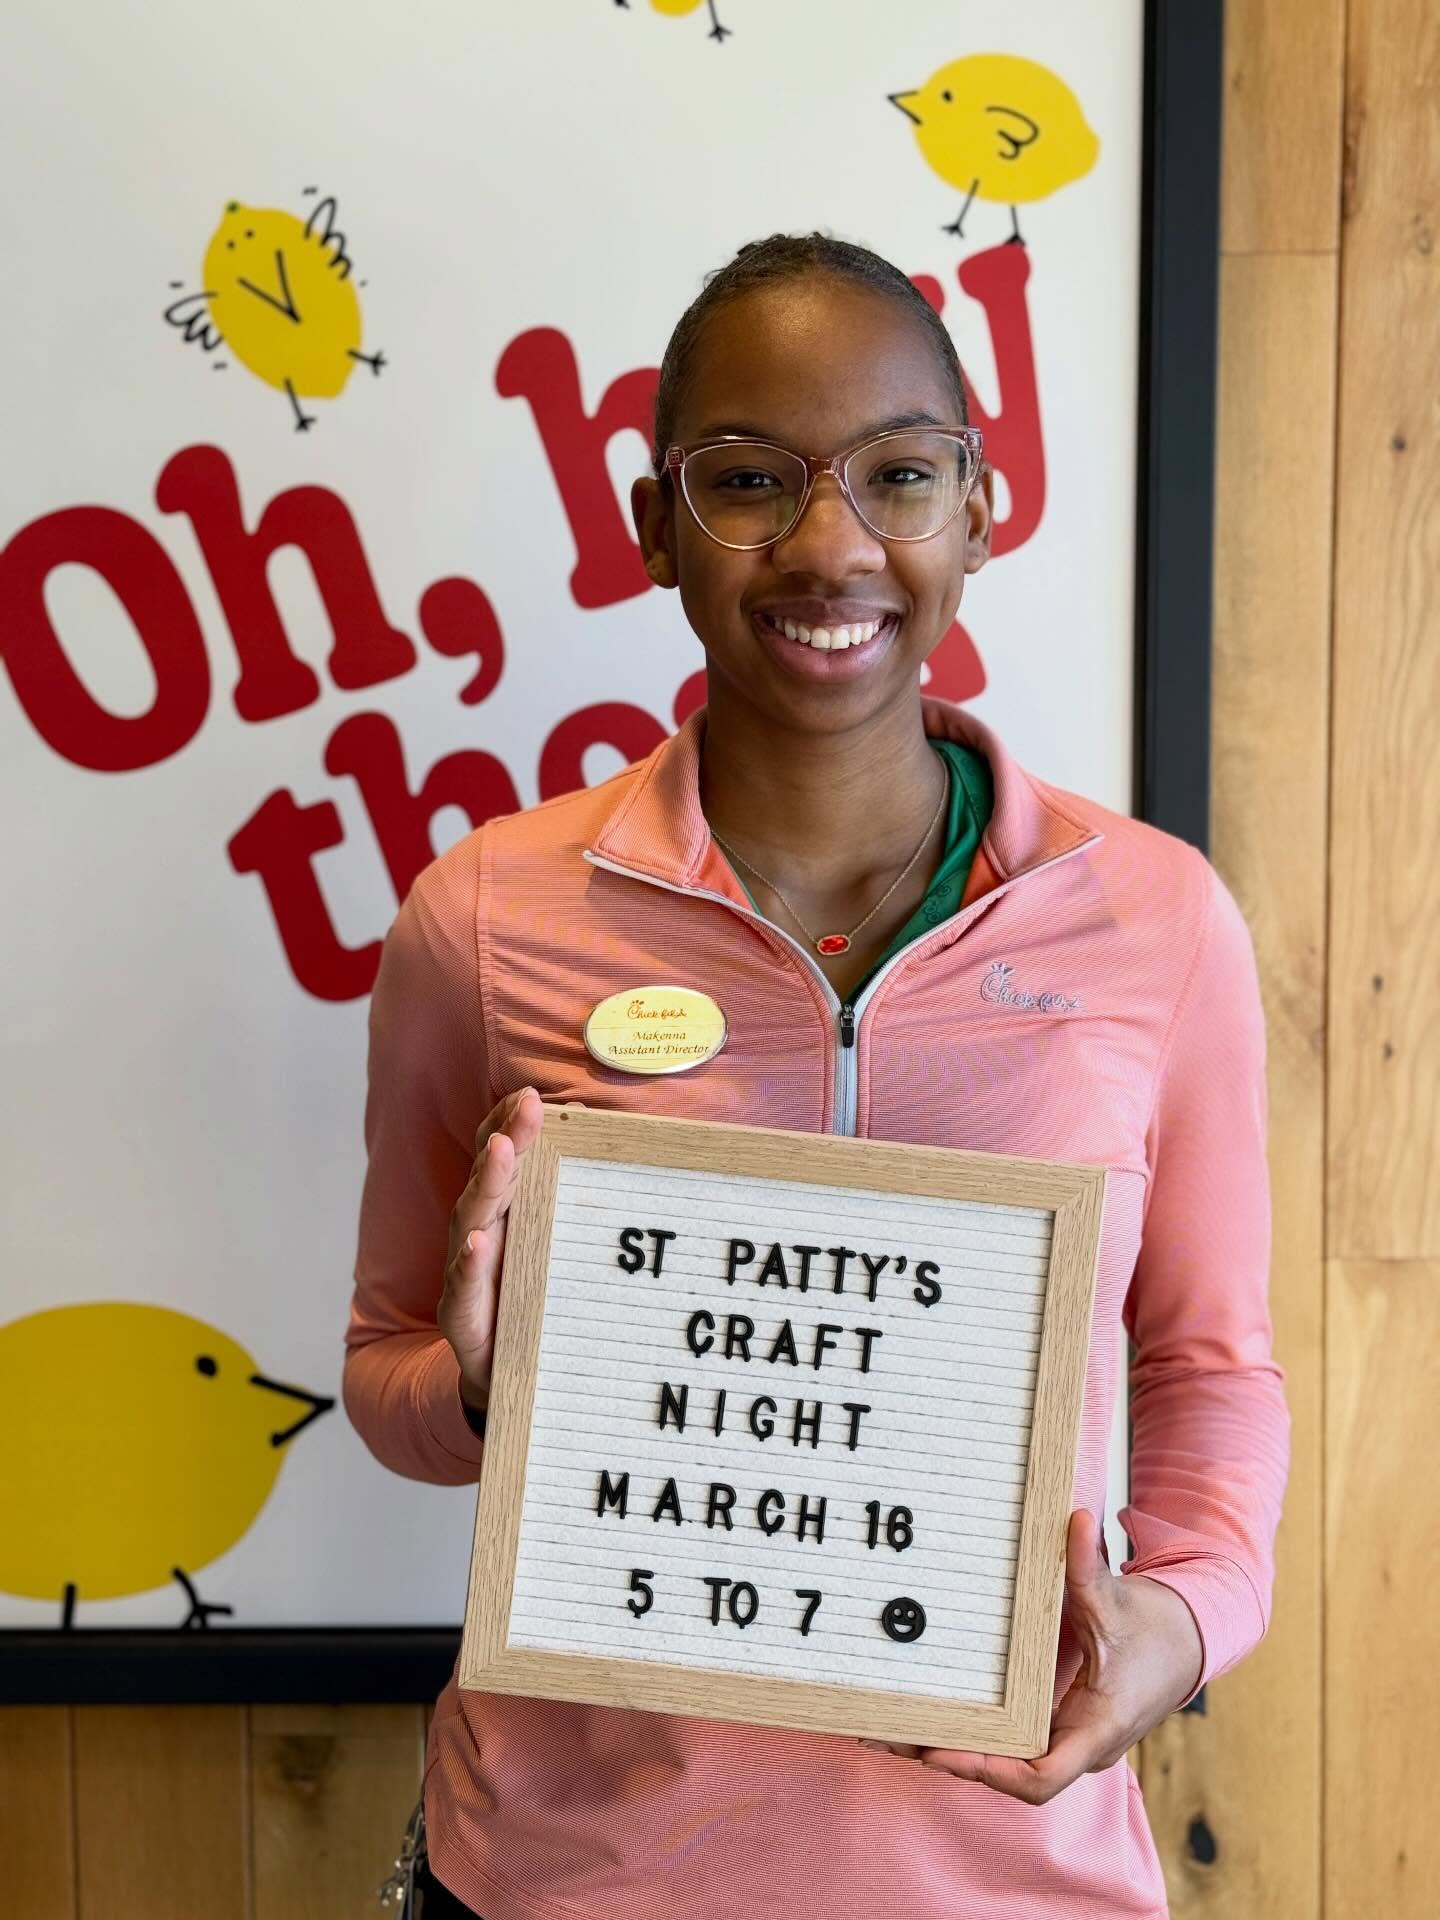 Oh,
Chick-fil-A
Makenna
Assistant Director
Chick-fil-A
ST PATTY'S
CRAFT
NIGHT
MARCH 16
5 TO 7